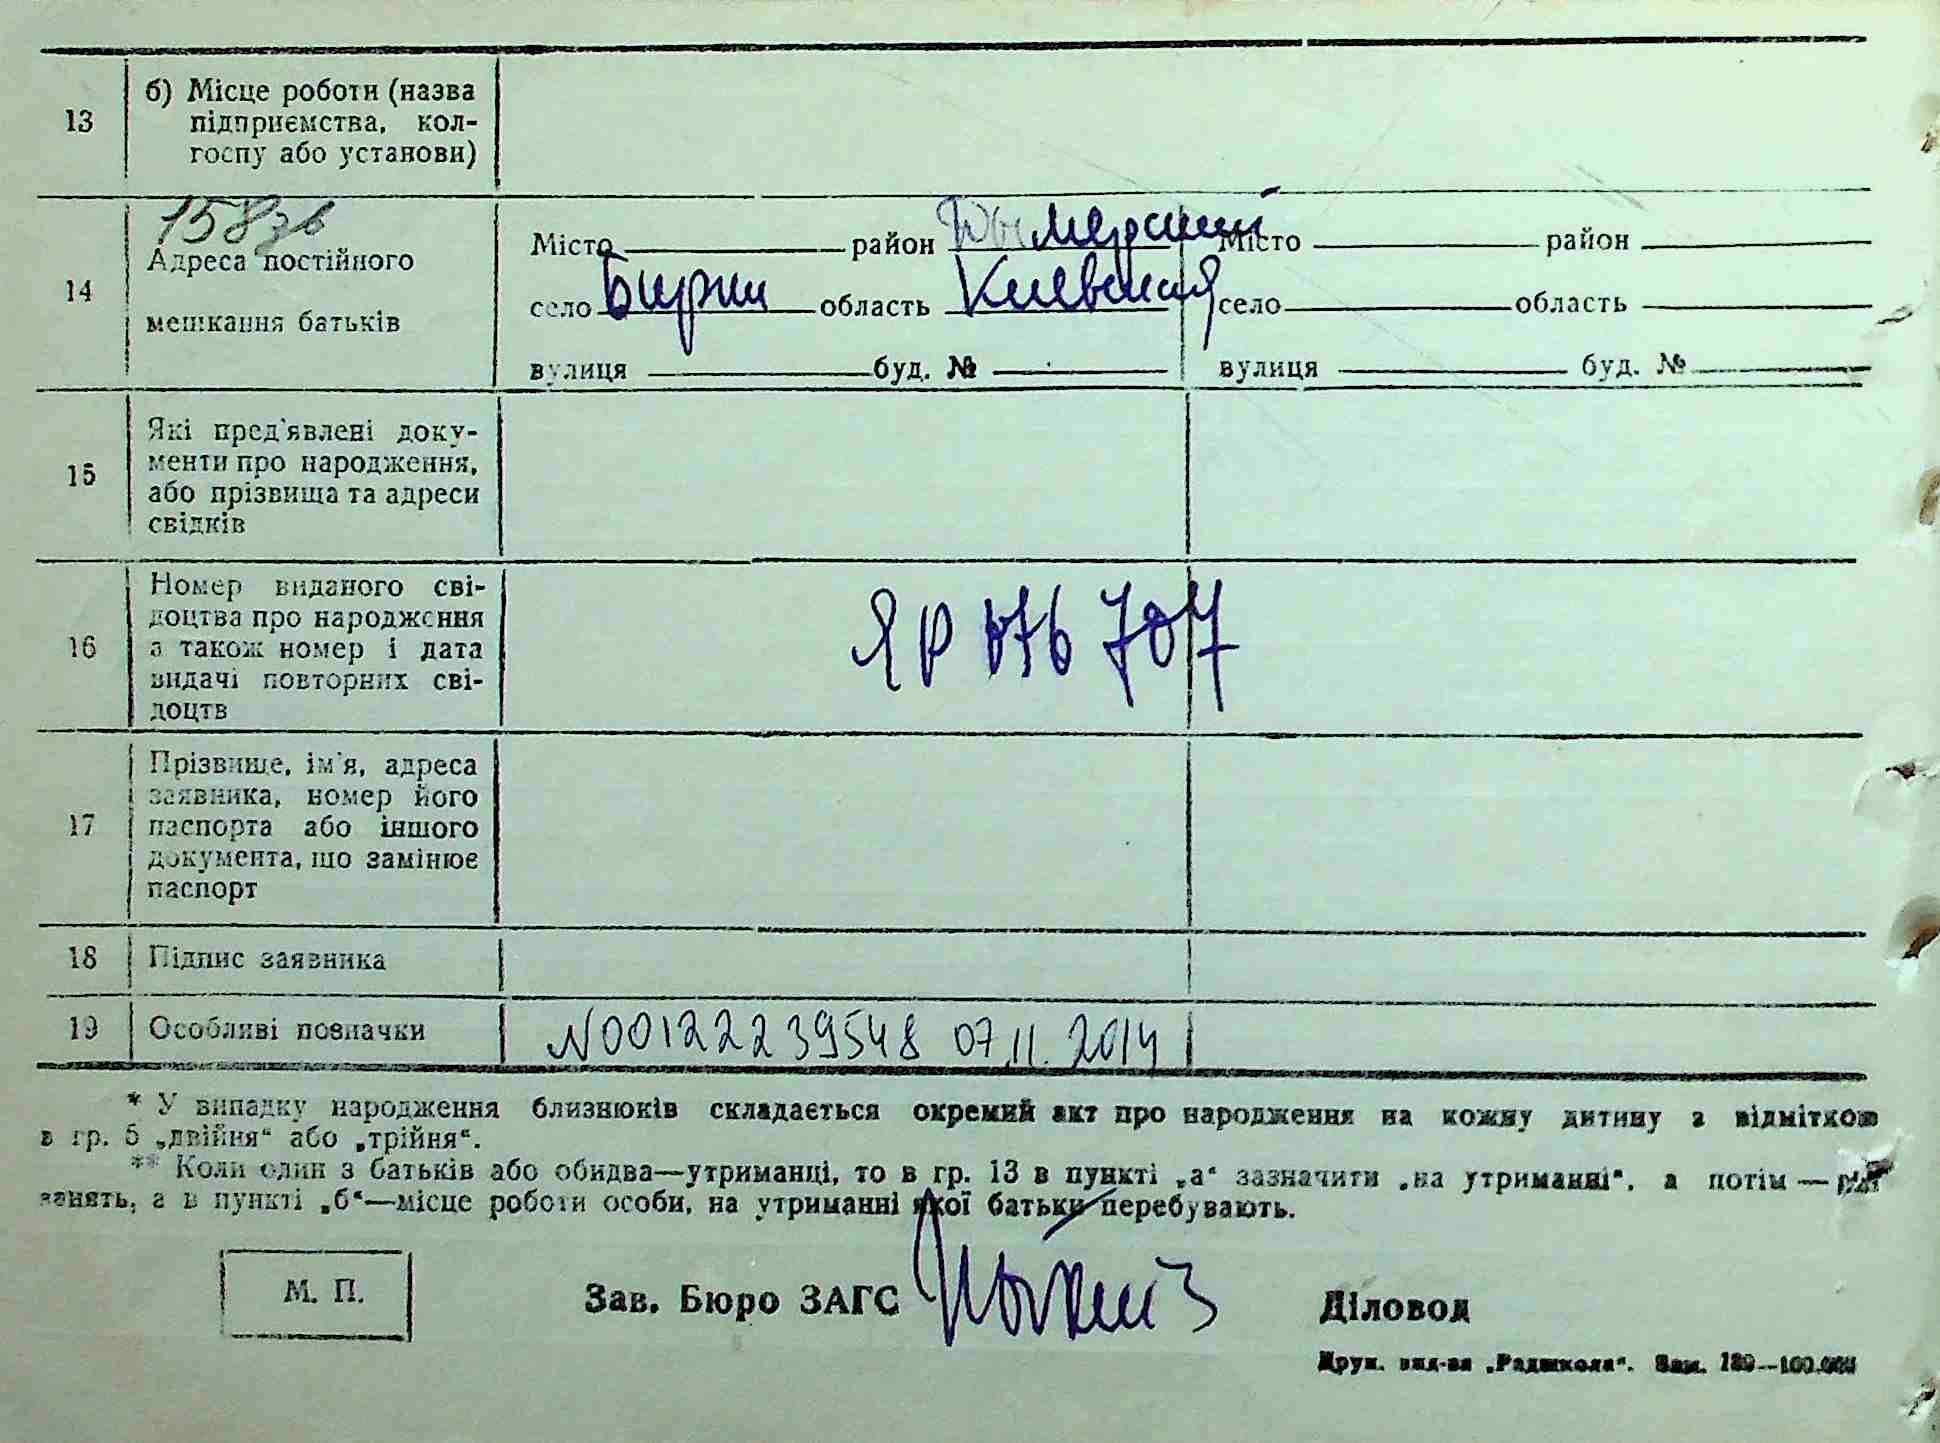 13
б) Місце роботи (назва
підприємства, кол-
госпу або установи)
158зв
14
Адреса постійного
мешкання батьків
Місто район Дымерский Місто район
село область Киевская село область
вулиця буд. № вулиця буд. №
15
Які пред'явлені доку-
менти про народження,
або прізвища та адреси
свідків
16
Номер виданого сві-
доцтва про народження
а також номер і дата
видачі повторних сві-
доцтв
ЯР 076 707
17
Прізвище, ім'я, адреса
заявника, номер його
паспорта або іншого
документа, що замінює
паспорт
18 Підпис заявника
19 Особливі позначки N00122239548 07.11.2014
* У випадку народження близнюків складається окремий акт про народження на кожну дитину з відміткою
в гр. 5 „двійня“ або „трійня“.
** Коли один з батьків або обидва—утриманці, то в гр. 13 в пункті „а“ зазначити „на утриманні“, а потім —
занять, а в пункті „б“—місце роботи особи, на утриманні якої батьки перебувають.
М. П.
Зав. Бюро ЗАГС
Діловод
Друк. вид-ва „Радшкола“. Зам. 139—100.000